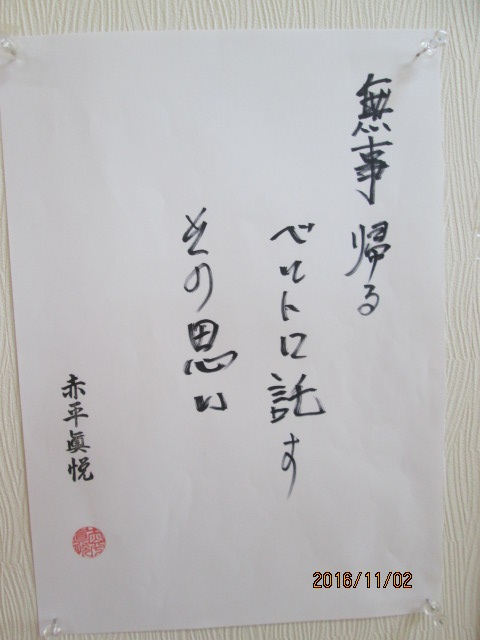 無事帰る
ベルトに託す
その思い
赤平眞悦
2016/11/02